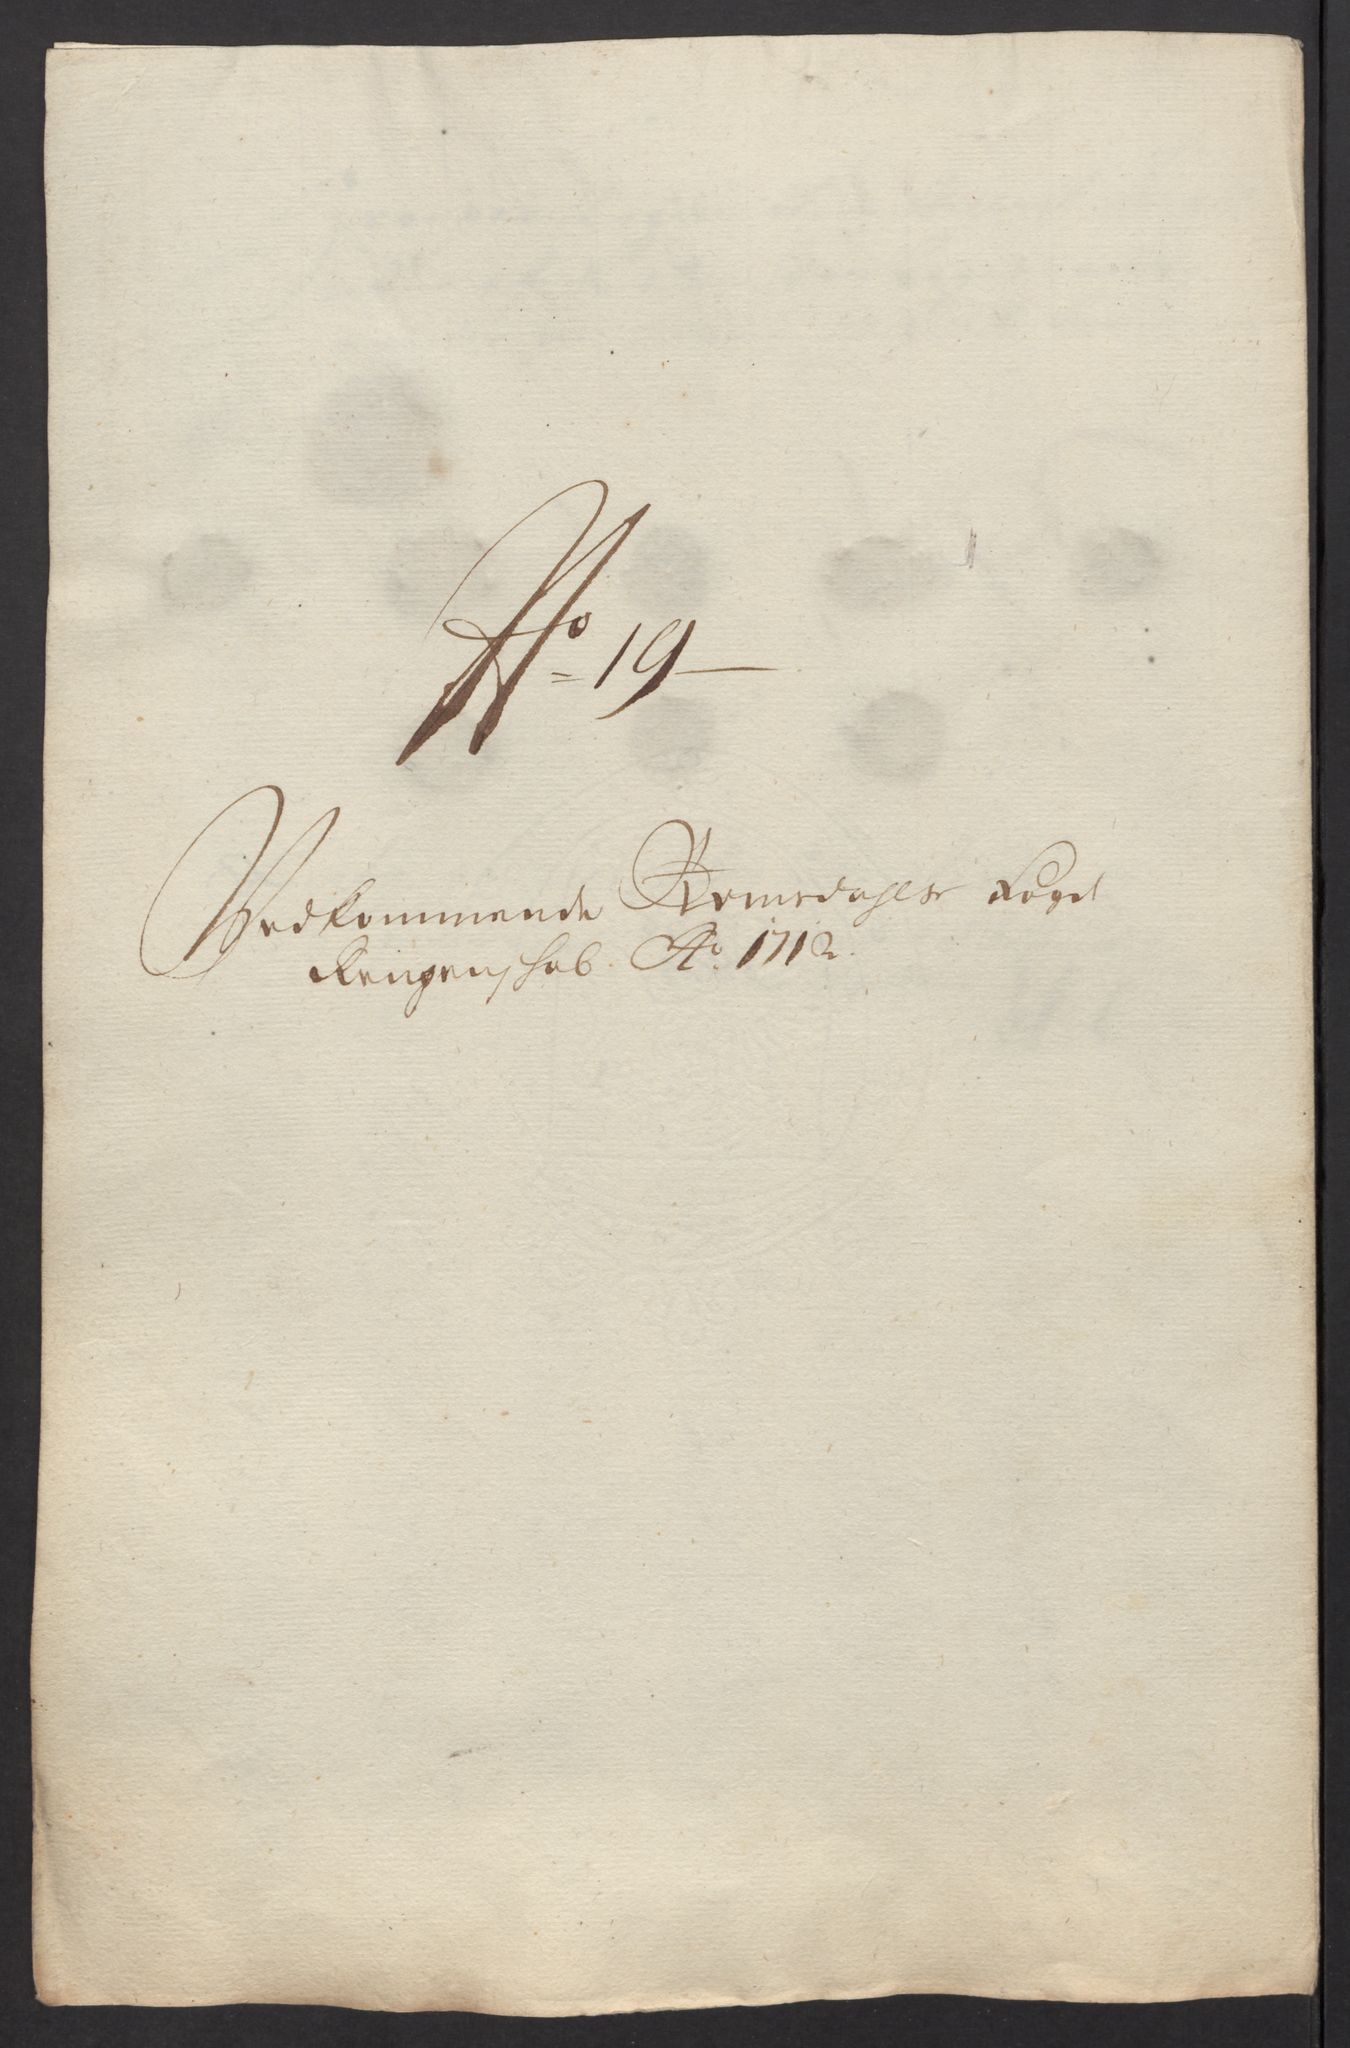 No 19
Vedkommende Romsdahls Fogd
Rengenschab Ao 1712.